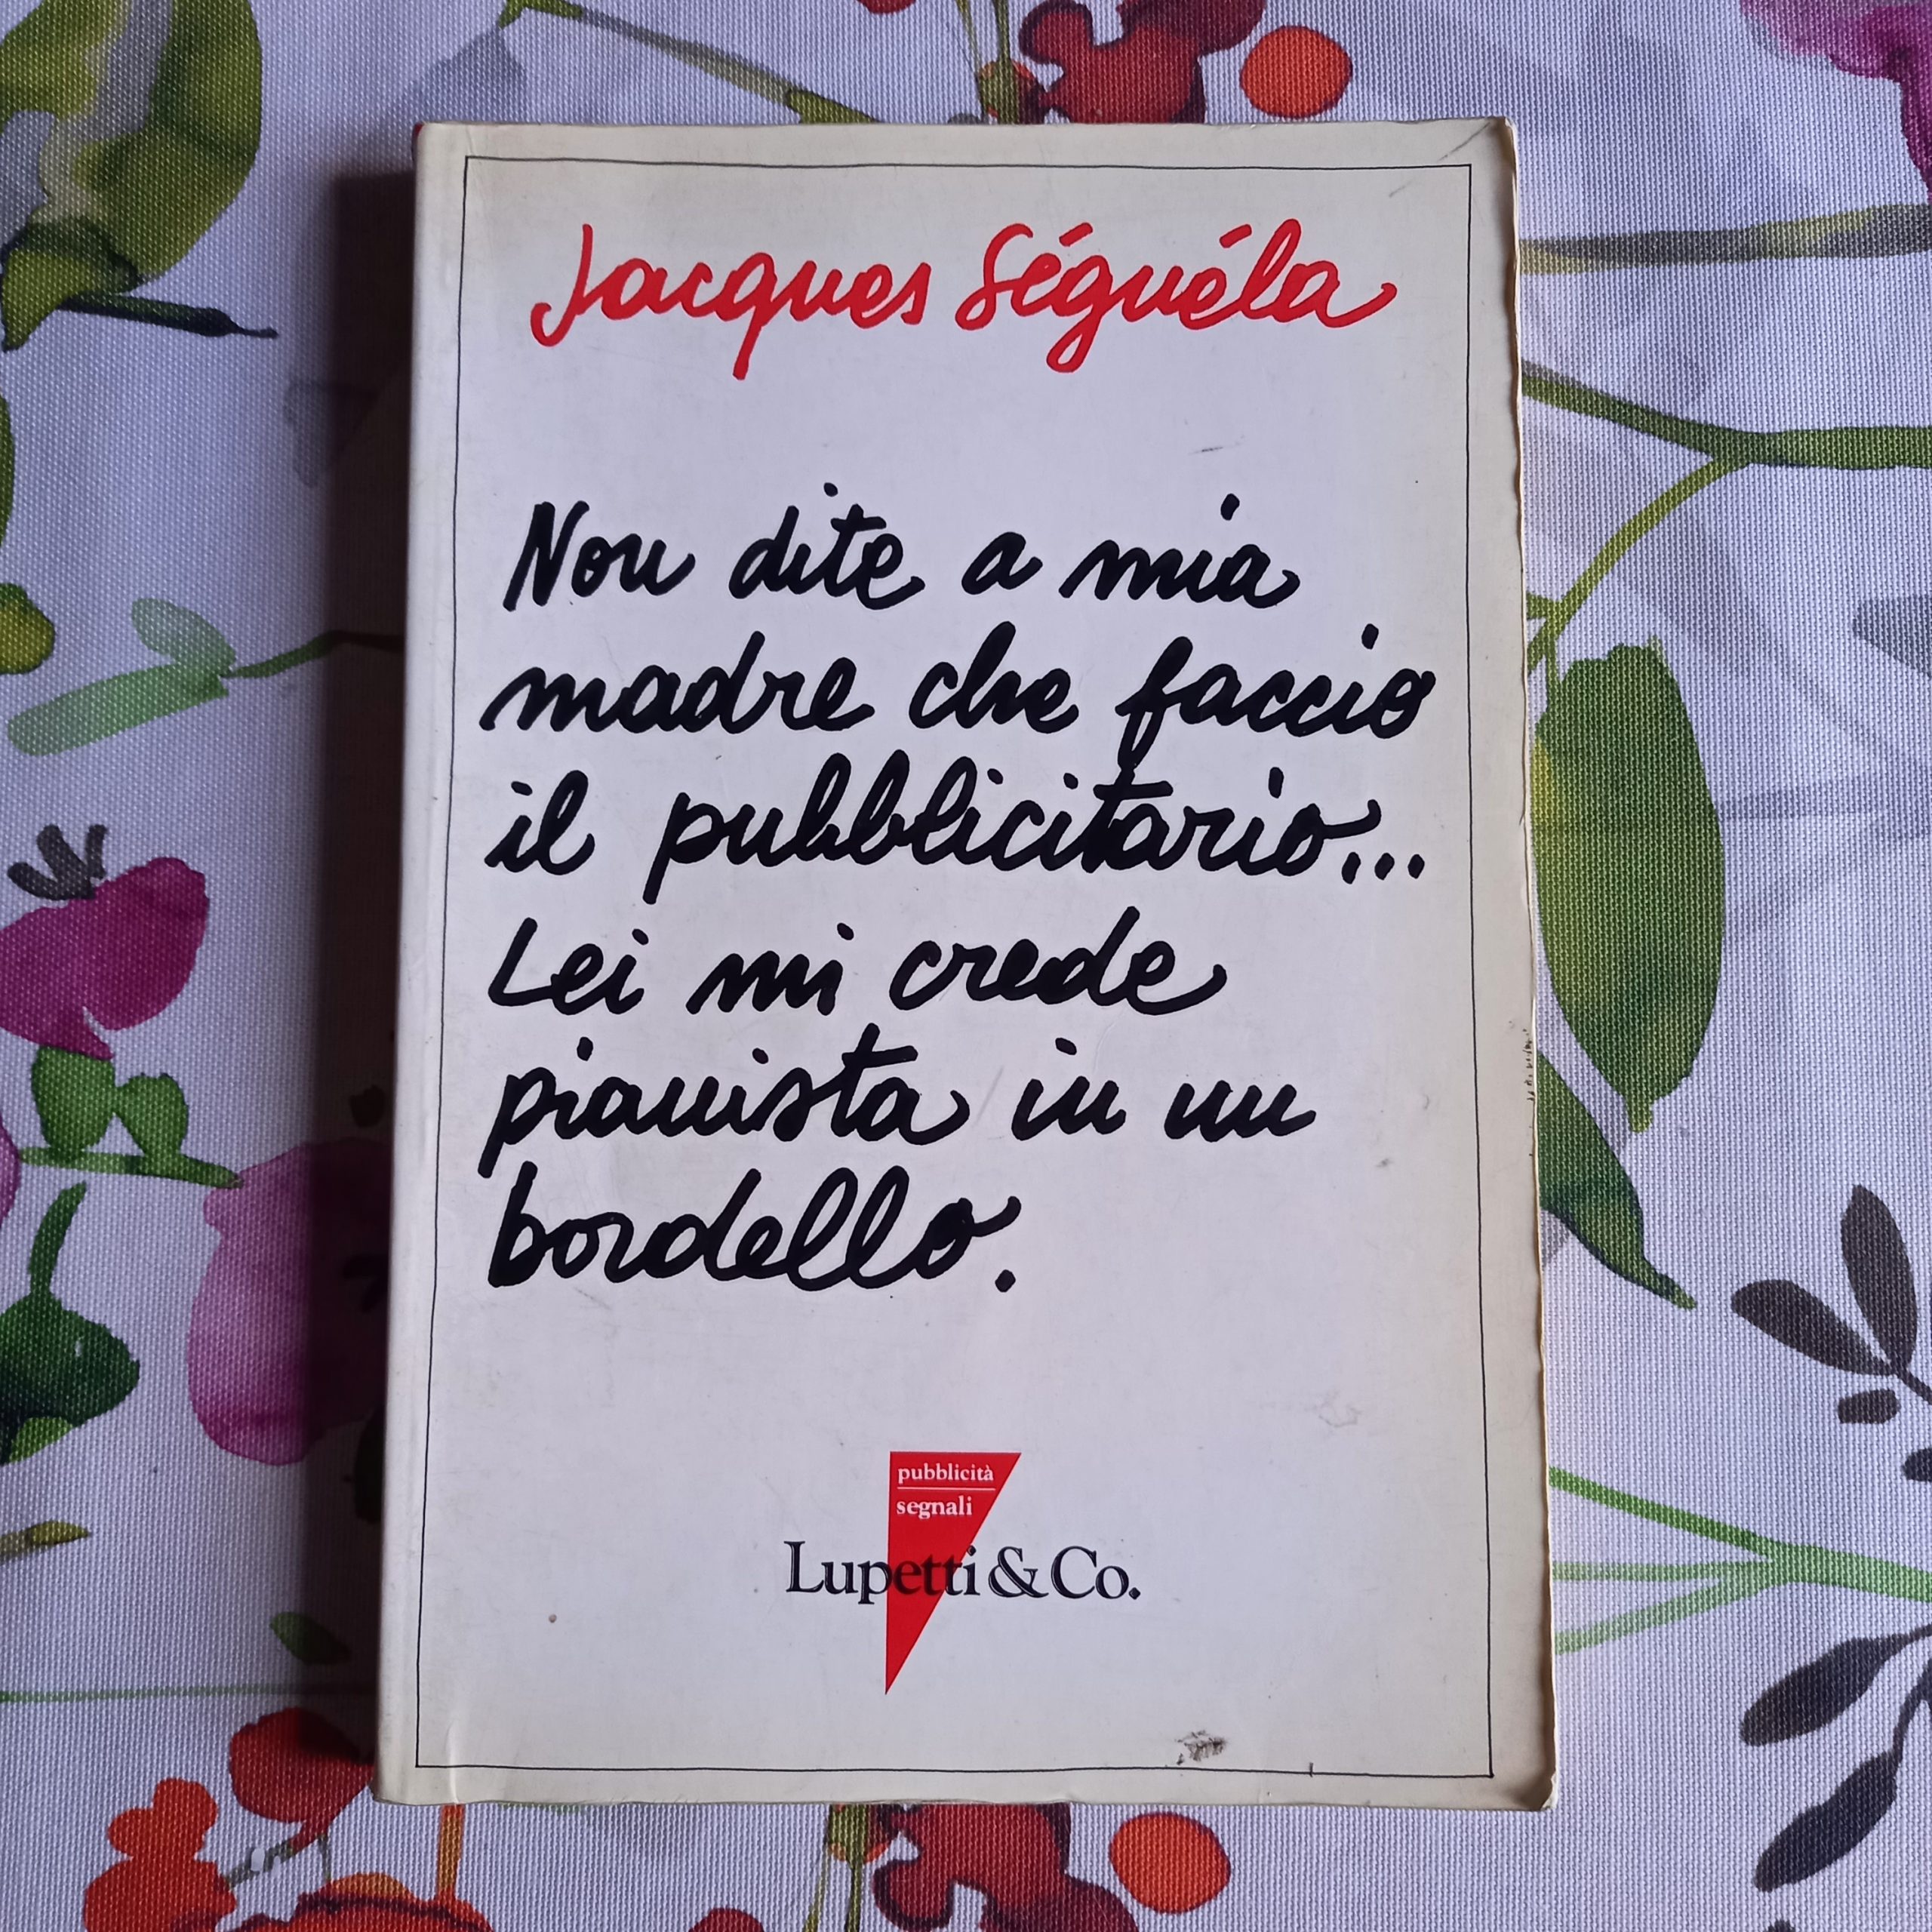 Jacques Séguéla
Non dite a mia
madre che faccio
il pubblicitario...
Lei mi crede
pianista in un
bordello.
pubblicità
segnali
Lupetti & Co.